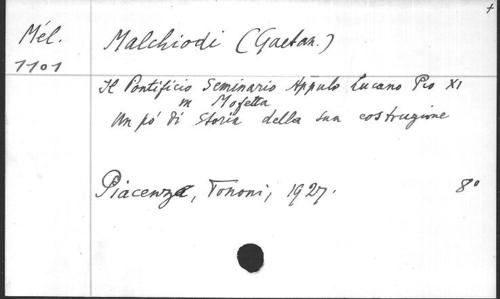 +
Mél.
1101
Malchiodi (Gaetan.)
Il Pontificio Seminario Appulo Lucano Pio XI
in Mofetta
Un pó di Storia della sua costruzione
Piacenza, Tononi, 1927. 8°